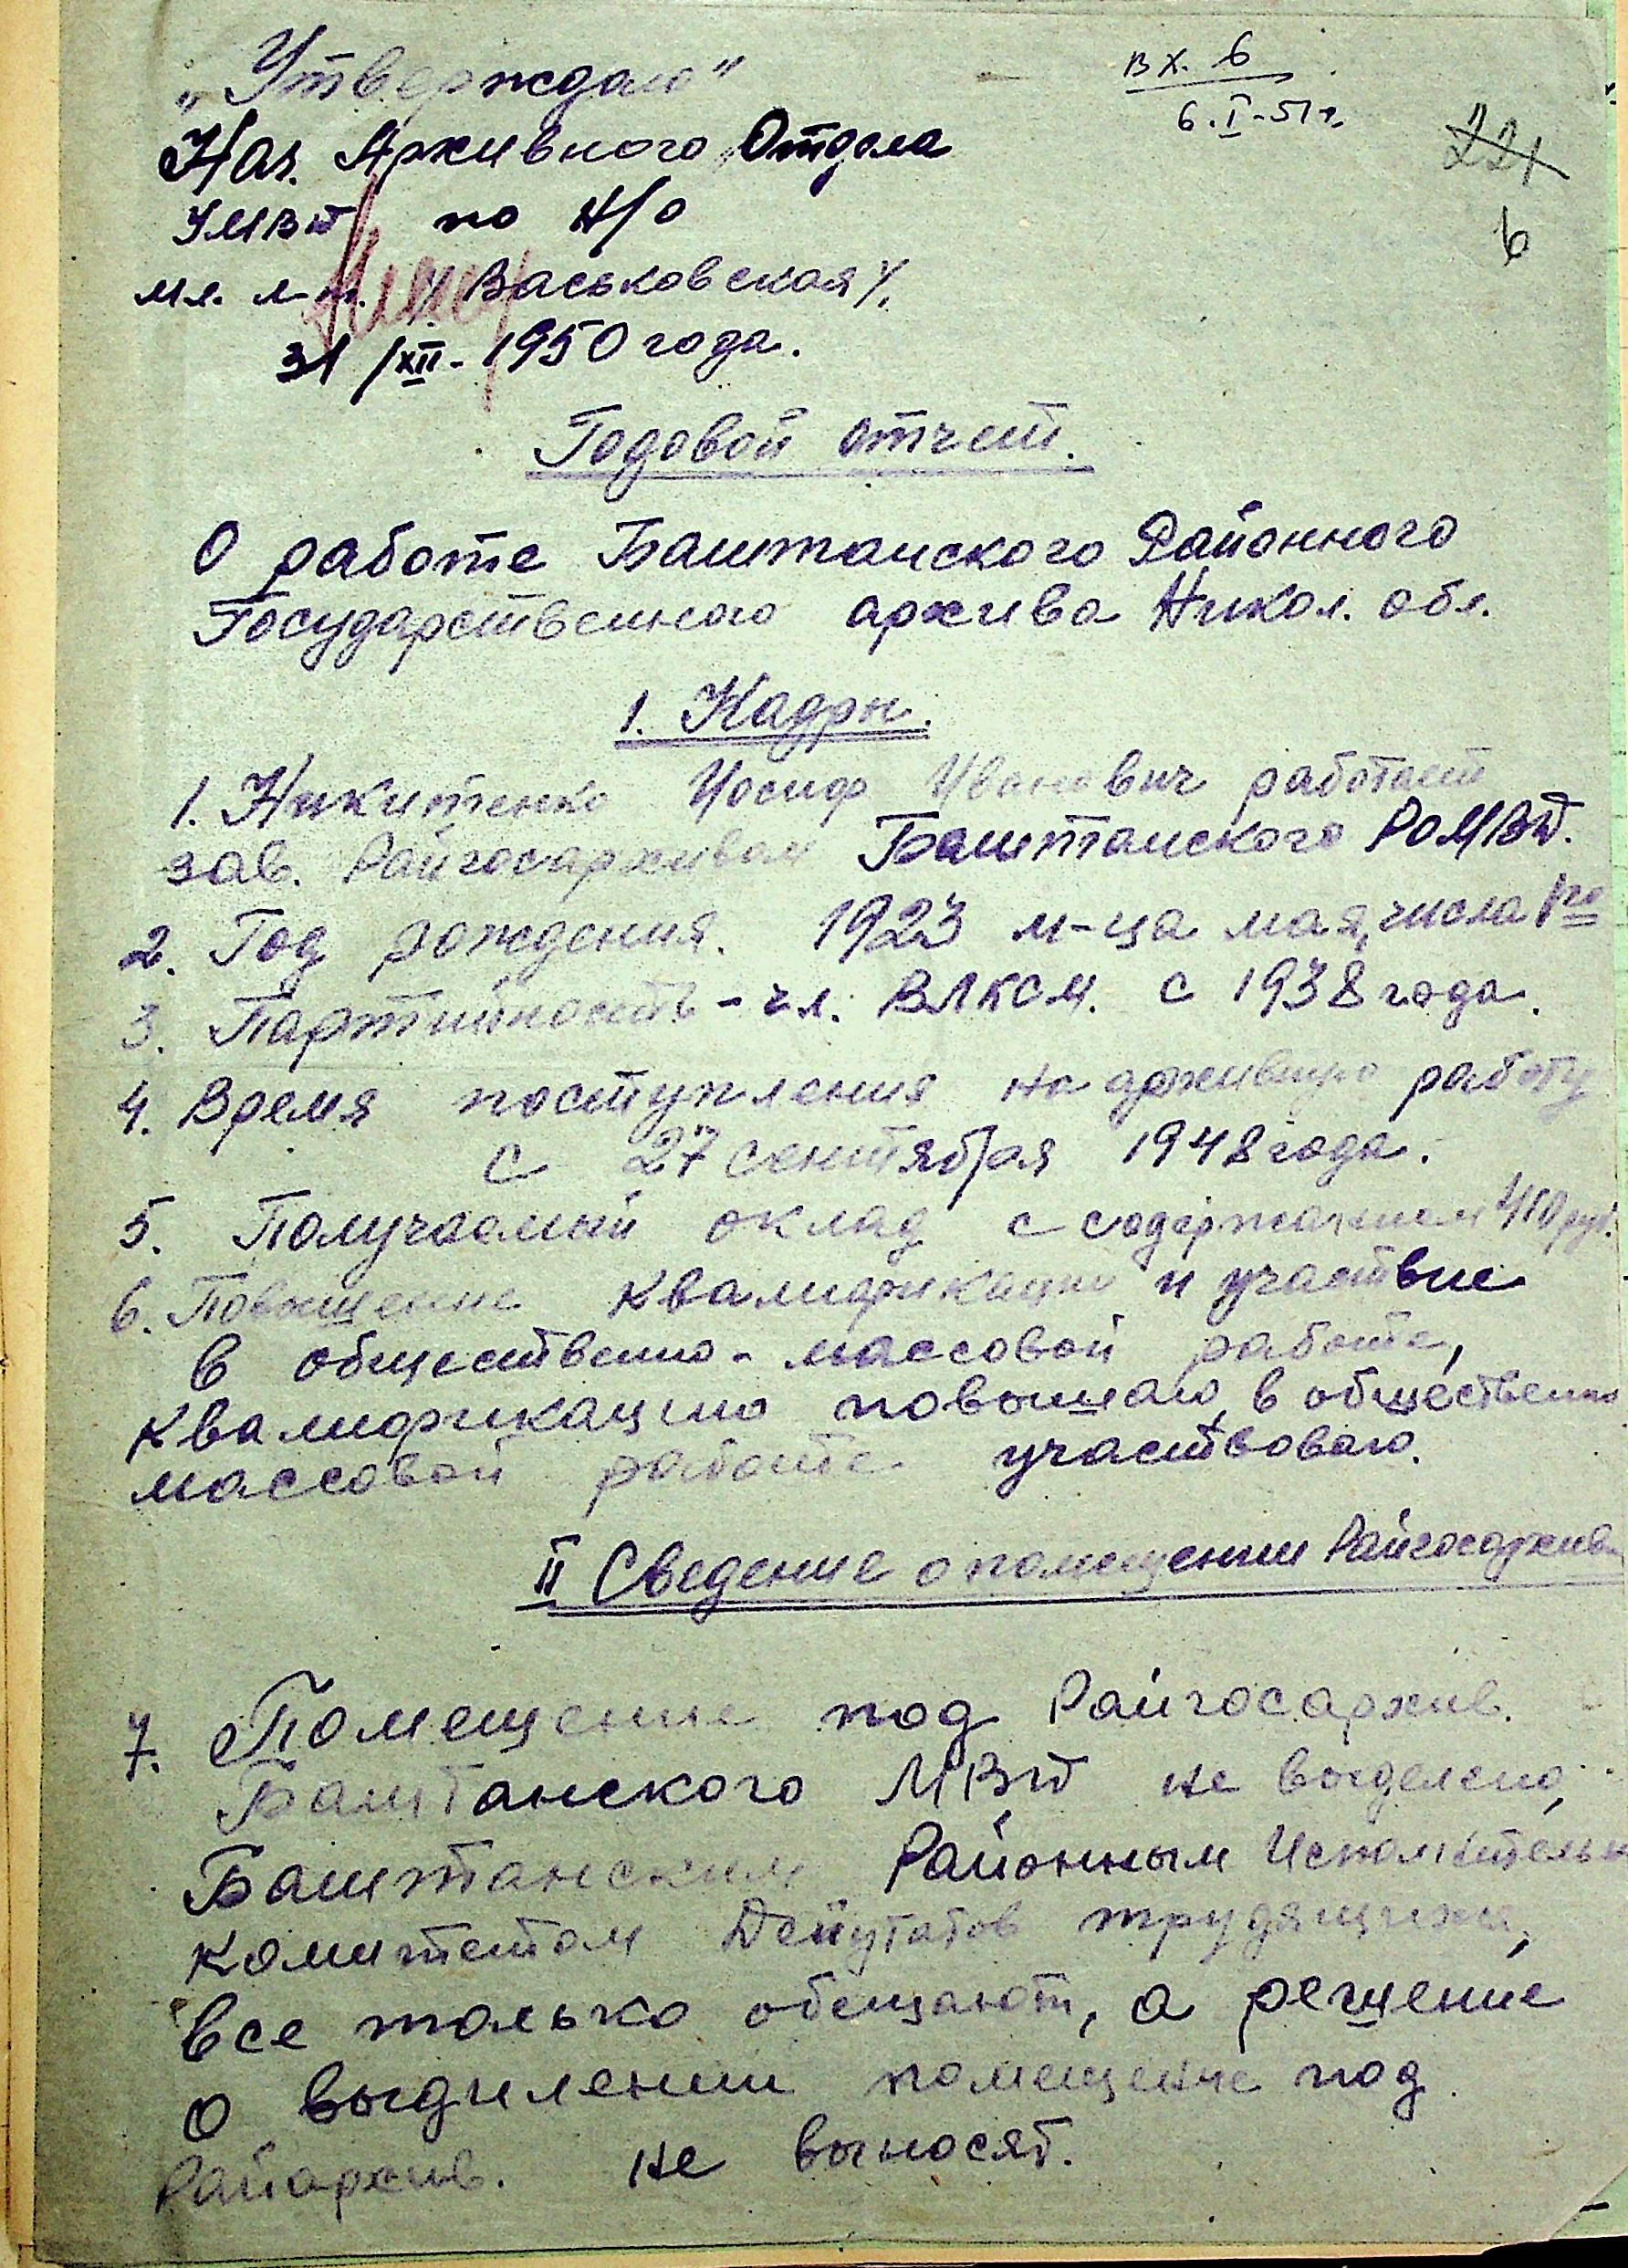 „Утверждаю"
вх. 6
6.I-51г.
221
6
Нач. Архивного Отдела
УМВД по Н/О
мл. л-т. /Васьковская/.
31/XII-1950 года.
Годовой отчет.
О работе Баштанского Районного
Государственного архива Никол. обл.
1. Кадры.
1. Никитенко Иосиф Иванович работает
зав. Райгосархивом Баштанского РОМВД.
2. Год рождения. 1923 м-ца мая, числа 1го
3. Партийность - чл. ВЛКСМ. с 1938 года.
4. Время поступления на архивную работу
с 27 сентября 1948 года.
5. Получаемый оклад с содержанием 410 руб.
6. Повышение квалификации и участвие
в общественно-массовой работе,
квалификацию повышаю, в общественно
массовой работе участвоваю.
II Сведение о помещении Райгосархива
7. Помещение под Райгосархив.
Баштанского МВД не выделено,
Баштанским Районным Исполнительн
комитетом Депутатов трудящихся,
все только обещают, а решение
о выдилении помещение под
Райархив. не выносят.